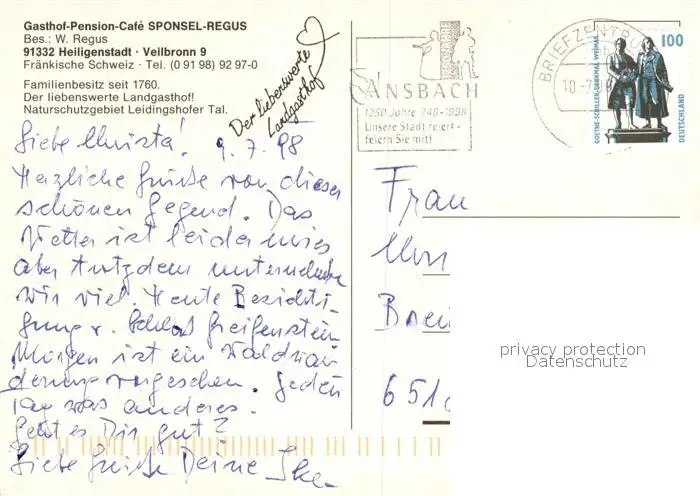 Gasthof-Pension-Café SPONSEL-REGUS
Bes.: W. Regus
91332 Heiligenstadt · Veilbronn 9
Fränkische Schweiz · Tel. (0 91 98) 92 97-0
Familienbesitz seit 1760.
Der liebenswerte Landgasthof!
Naturschutzgebiet Leidingshofer Tal.
Der liebenswerte
Landgasthof
Liebe Christa! 9.7.98
Herzliche Grüsse von dieser
schönen Gegend. Das
Wetter ist leider mies
aber trotzdem unternehmen
wir viel. Heute Besichti-
gung v. Schloß Greifenstein
Morgen ist ein Waldwan
derung vorgesehen. Jeden
Tag was anderes.
Geht es Dir gut?
Liebe Grüsse Deine
ANSBACH
1250 Jahre 748-1998
Unsere Stadt feiert -
feiern Sie mit!
BRIEFZENTRUM
10.-7.
100
GOETHE-SCHILLER-DENKMAL WEIMAR
DEUTSCHLAND
Frau
651
privacy protection
Datenschutz